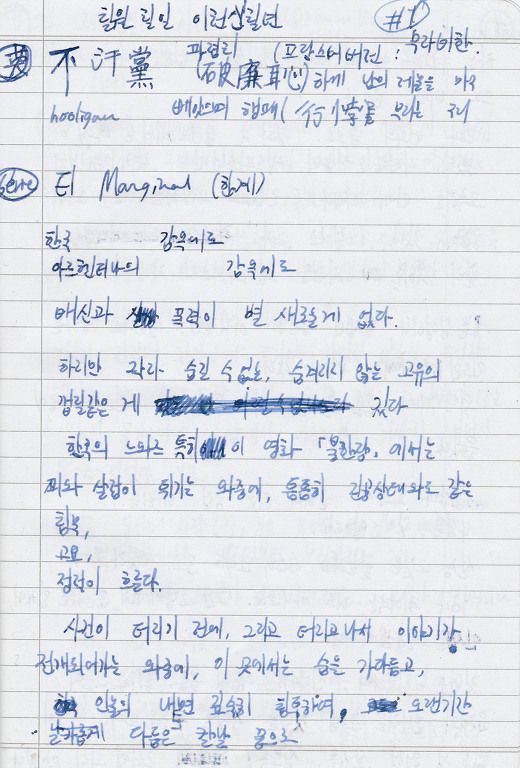 팀원 릴일 이런신릴년 #1
不汗黨 파렴치 (프랑스어버전 : 무라비한.
(破廉恥)하게 남의 재물을 마구
hooligan 빼앗으며 행패( 行悖를 부리는 무리
El Marginal (한계)
한국 감옥에로
아르헨티나의 감옥에로
배신과 폭력이 별 새로울게 없다.
하지만 각각 숨길 수 없는, 숨겨지지 않는 고유의
껍질같은 게 있다
한국의 느와르 특히 이 영화 「불한당」에서는
피와 살점이 튀기는 와중에, 통통히 진공상태와도 같은
침묵,
고요,
정적이 흐른다.
사건이 터지기 전에, 그리고 터지고 나서 이야기가
전개되어가는 와중에, 이 곳에서는 숨을 가다듬고,
인물의 내면 깊숙히 침투하여, 오랜기간
날카롭게 다듬은 칼날 끝으로